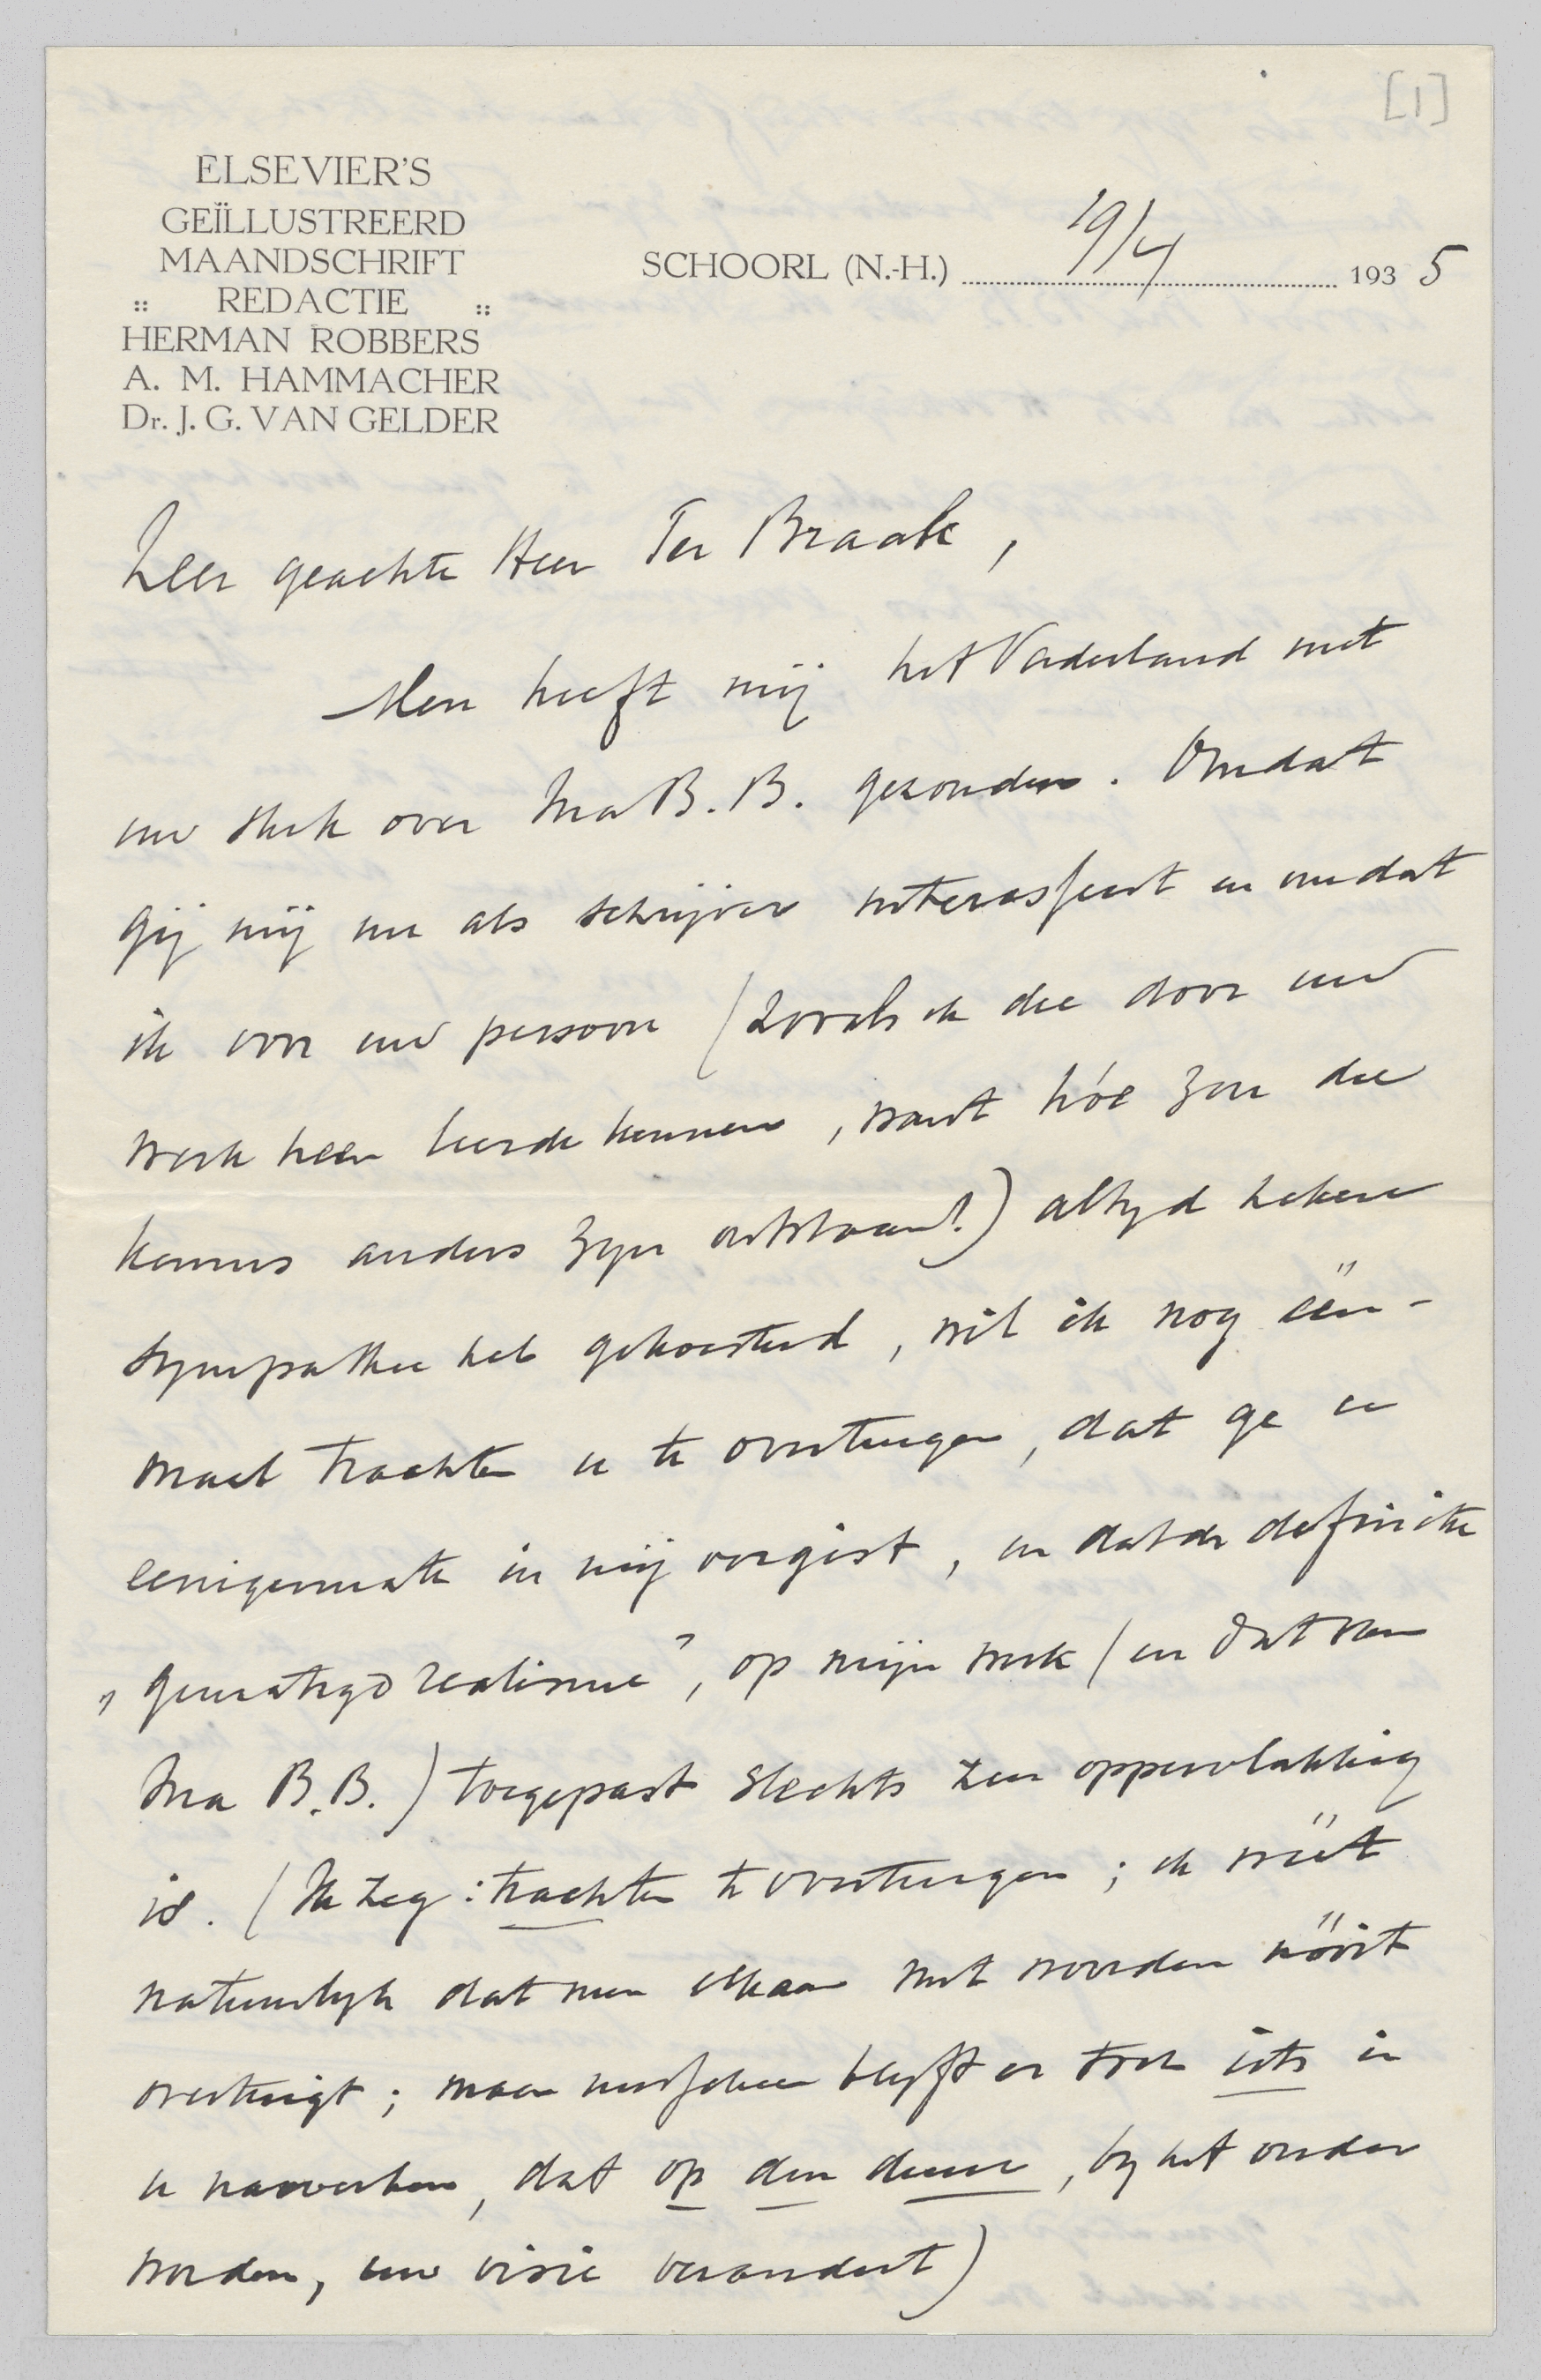 [1]
ELSEVIER'S
GEÏLLUSTREERD
MAANDSCHRIFT
:: REDACTIE ::
HERMAN ROBBERS
A. M. HAMMACHER
Dr. J. G. VAN GELDER
SCHOORL (N.-H.) 19/4 1935
Zeer geachte Heer Ter Braak,
Men heeft mij het Vaderland met
uw stuk over Ina B.B. gezonden. Omdat
gij mij nu als schrijver interesseert en omdat
ik voor uw persoon (zooals ik die door uw
werk heen leerde kennen, want hóe zou die
kennis anders zijn ontstaan!) altijd zekere
sympathie heb gekoesterd, wil ik nog één-
maal trachten u te overtuigen, dat ge u
eenigermate in mij vergist, en dat de definitie
„gematigd realisme”, op mijn werk (en dat van
Ina B.B.) toegepast slechts zeer oppervlakkig
is. (Ik zeg: trachten te overtuigen; ik wéét
natuurlijk dat men elkaar met woorden nóóit
overtuigt; maar misschien blijft er toch iets in
u nawerken, dat op den duur, bij het ouder
worden, uw visie verandert)